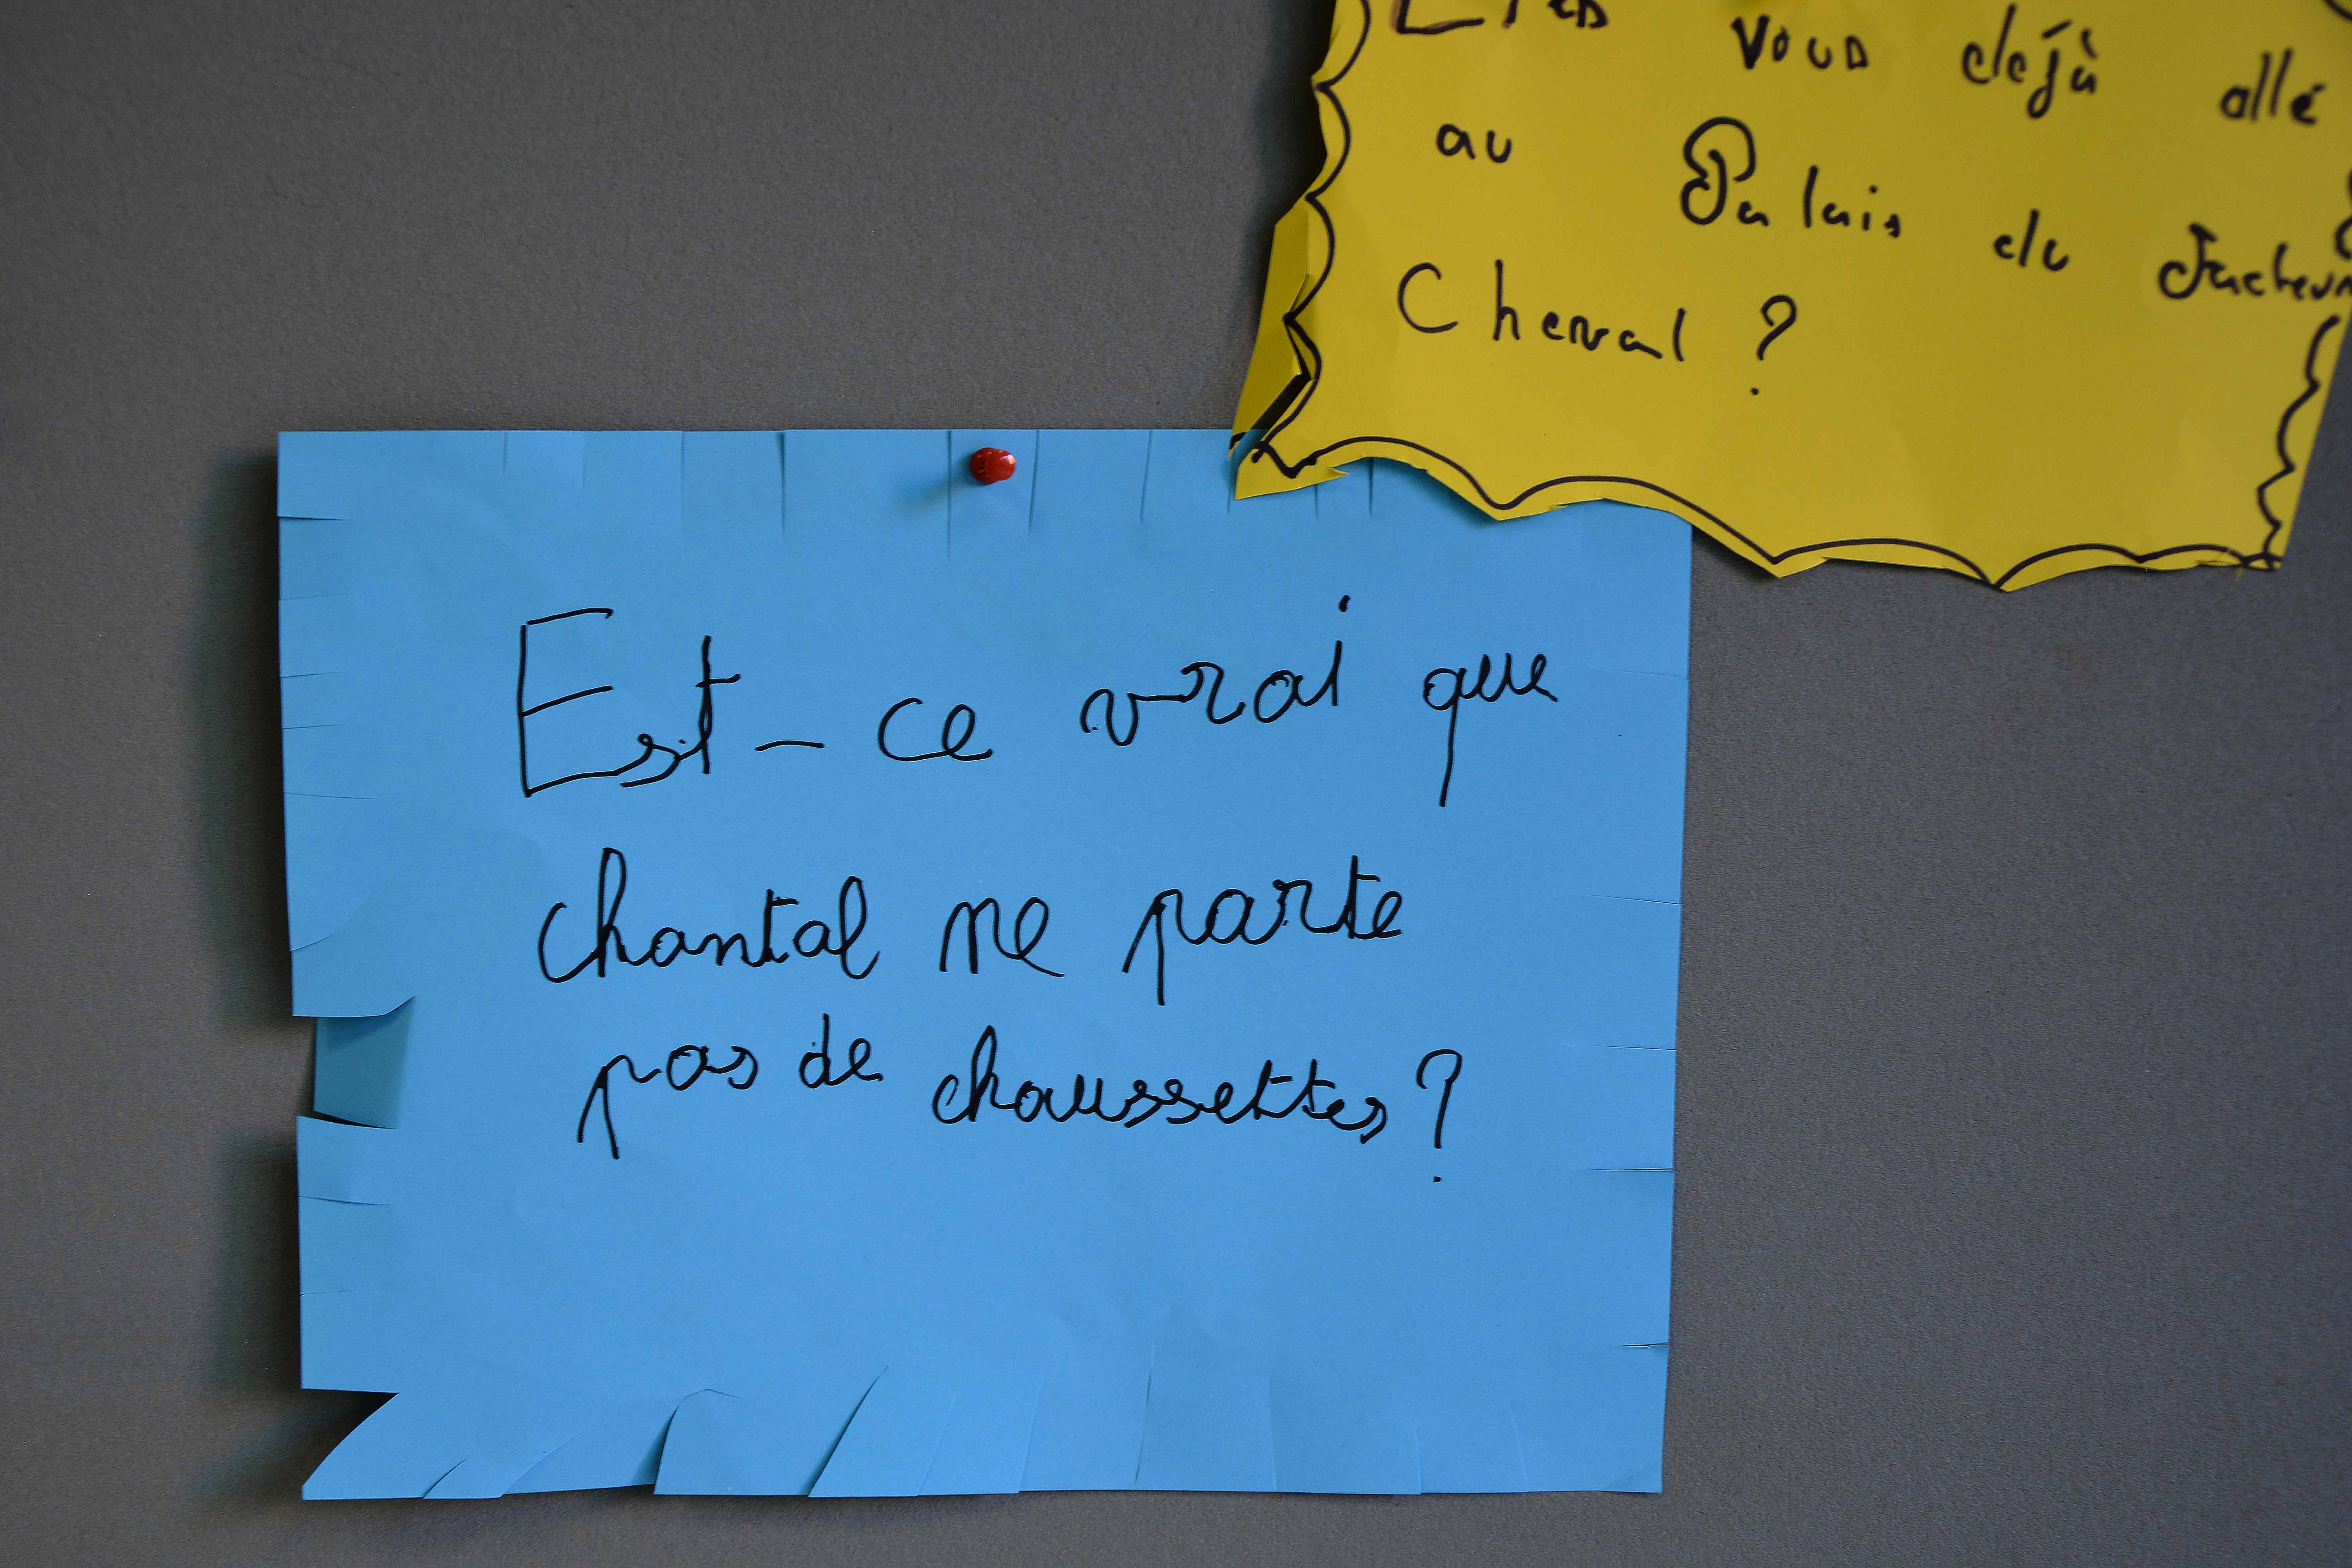 vous déjà allé
au Palais du Facteur
Cheval ?
Est-ce vrai que
chantal ne parte
pas de chaussettes ?